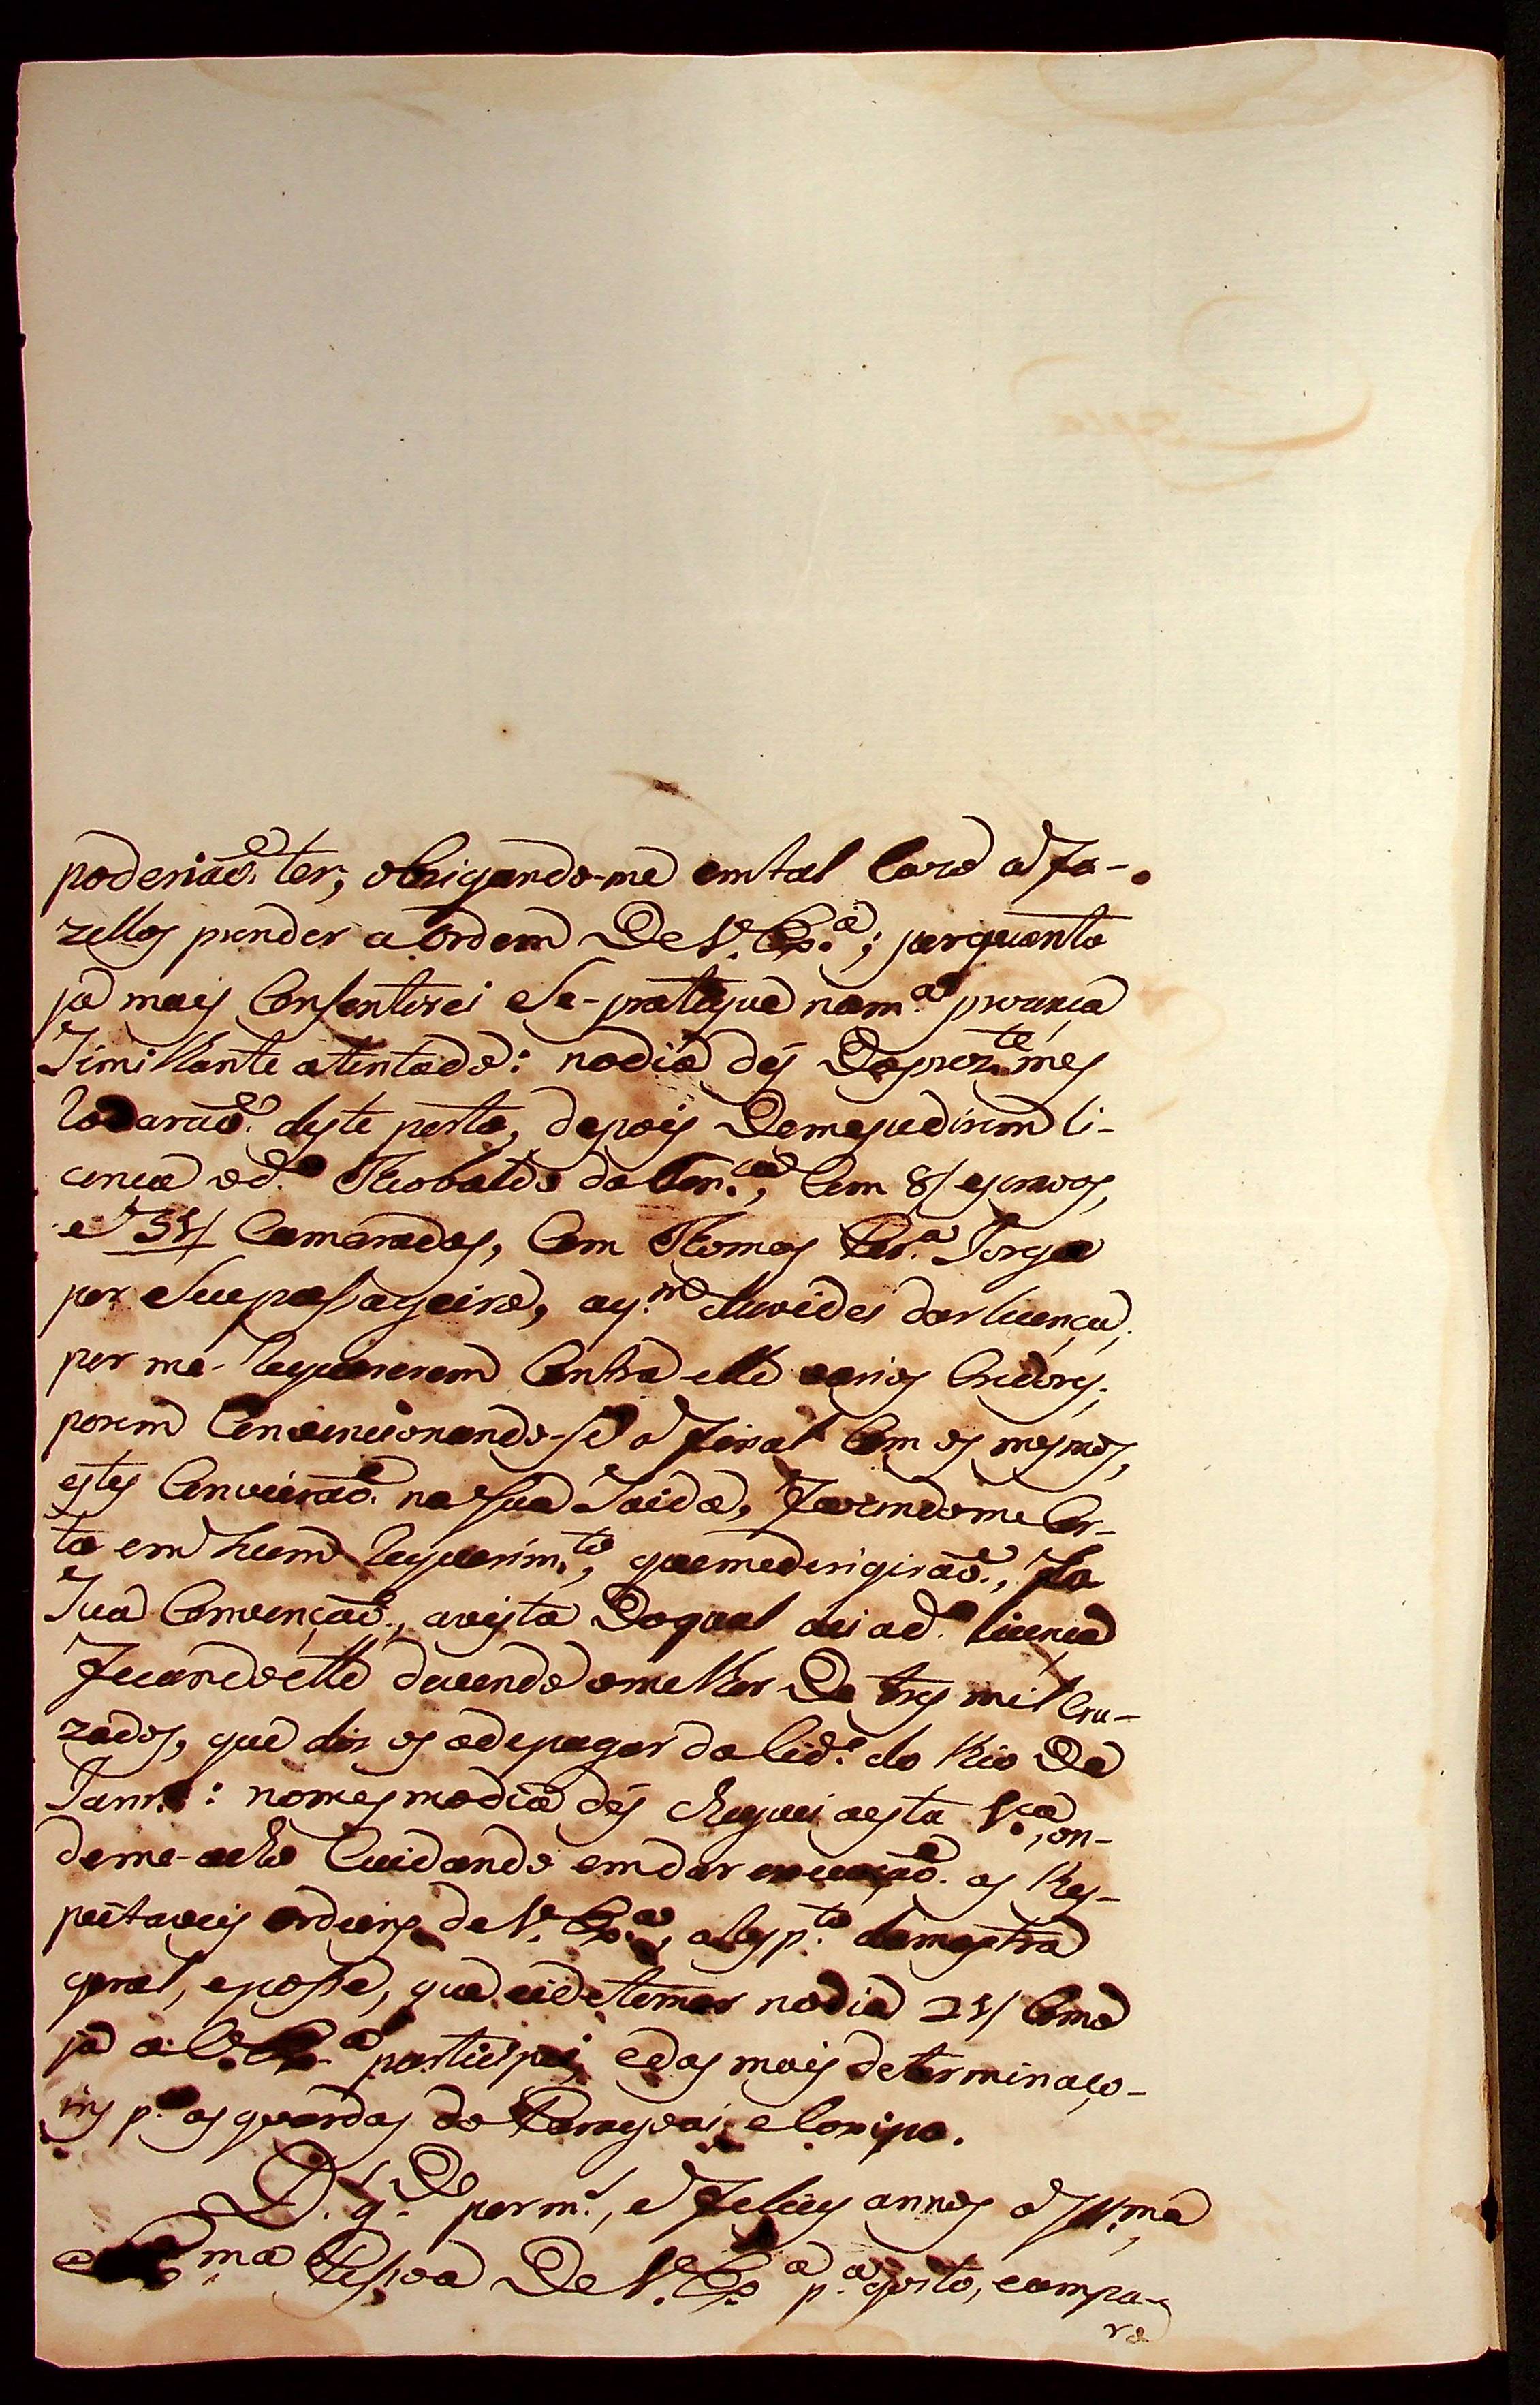 poderiaõ ter; obrigando-me em tal Cazo a fa-
zellos prender a ordem De V. Ex.ª; porquanto
já mais Consentirei Se-pratique na m.ª prezença
Similhante atentado: no dia dés Do prez.te mes
Rodaraõ deste porto, depois De me pedirem li-
cença o d.º Theobaldo da Con.ca͂o, Com 8/ escravos,
e 31/ Camaradas, Com Thomas Jorge
por Seu passageiro, aq.m duvidei dar licença,
por me-Requererem Contra elle varios Credores;
porem Convencionando-se a final Com os mesmos,
estes Convieraõ na Sua Saida, fazendome Cer-
to em hum Requerim.to, que me derigiraõ, da
Sua Convençaõ, avista Do qual dei a d.ª licença
ficando elle devendo o melhor De tres mil Cru-
zados, que dis os adepagar da Cid.e do Rio De
Janr.º: no mesmo dia dés cheguei a esta V.ª, on-
de me-acho Cuidando em dar execuçaõ as Res-
peitaveis ordens de V. Ex.ª, a Resp.to da mostra
geral, e posse, que eide tomar no dia 21/ Como
já a V. Ex.ª participei, e das mais determinaço-
ins p.ª as guardas do Paragoai, e
D. g.De por m.s, e felices annos a Ill.ma
e Ex.ma Pessoa De V. Ex.ª p.ª gosto, e ampa-
ro